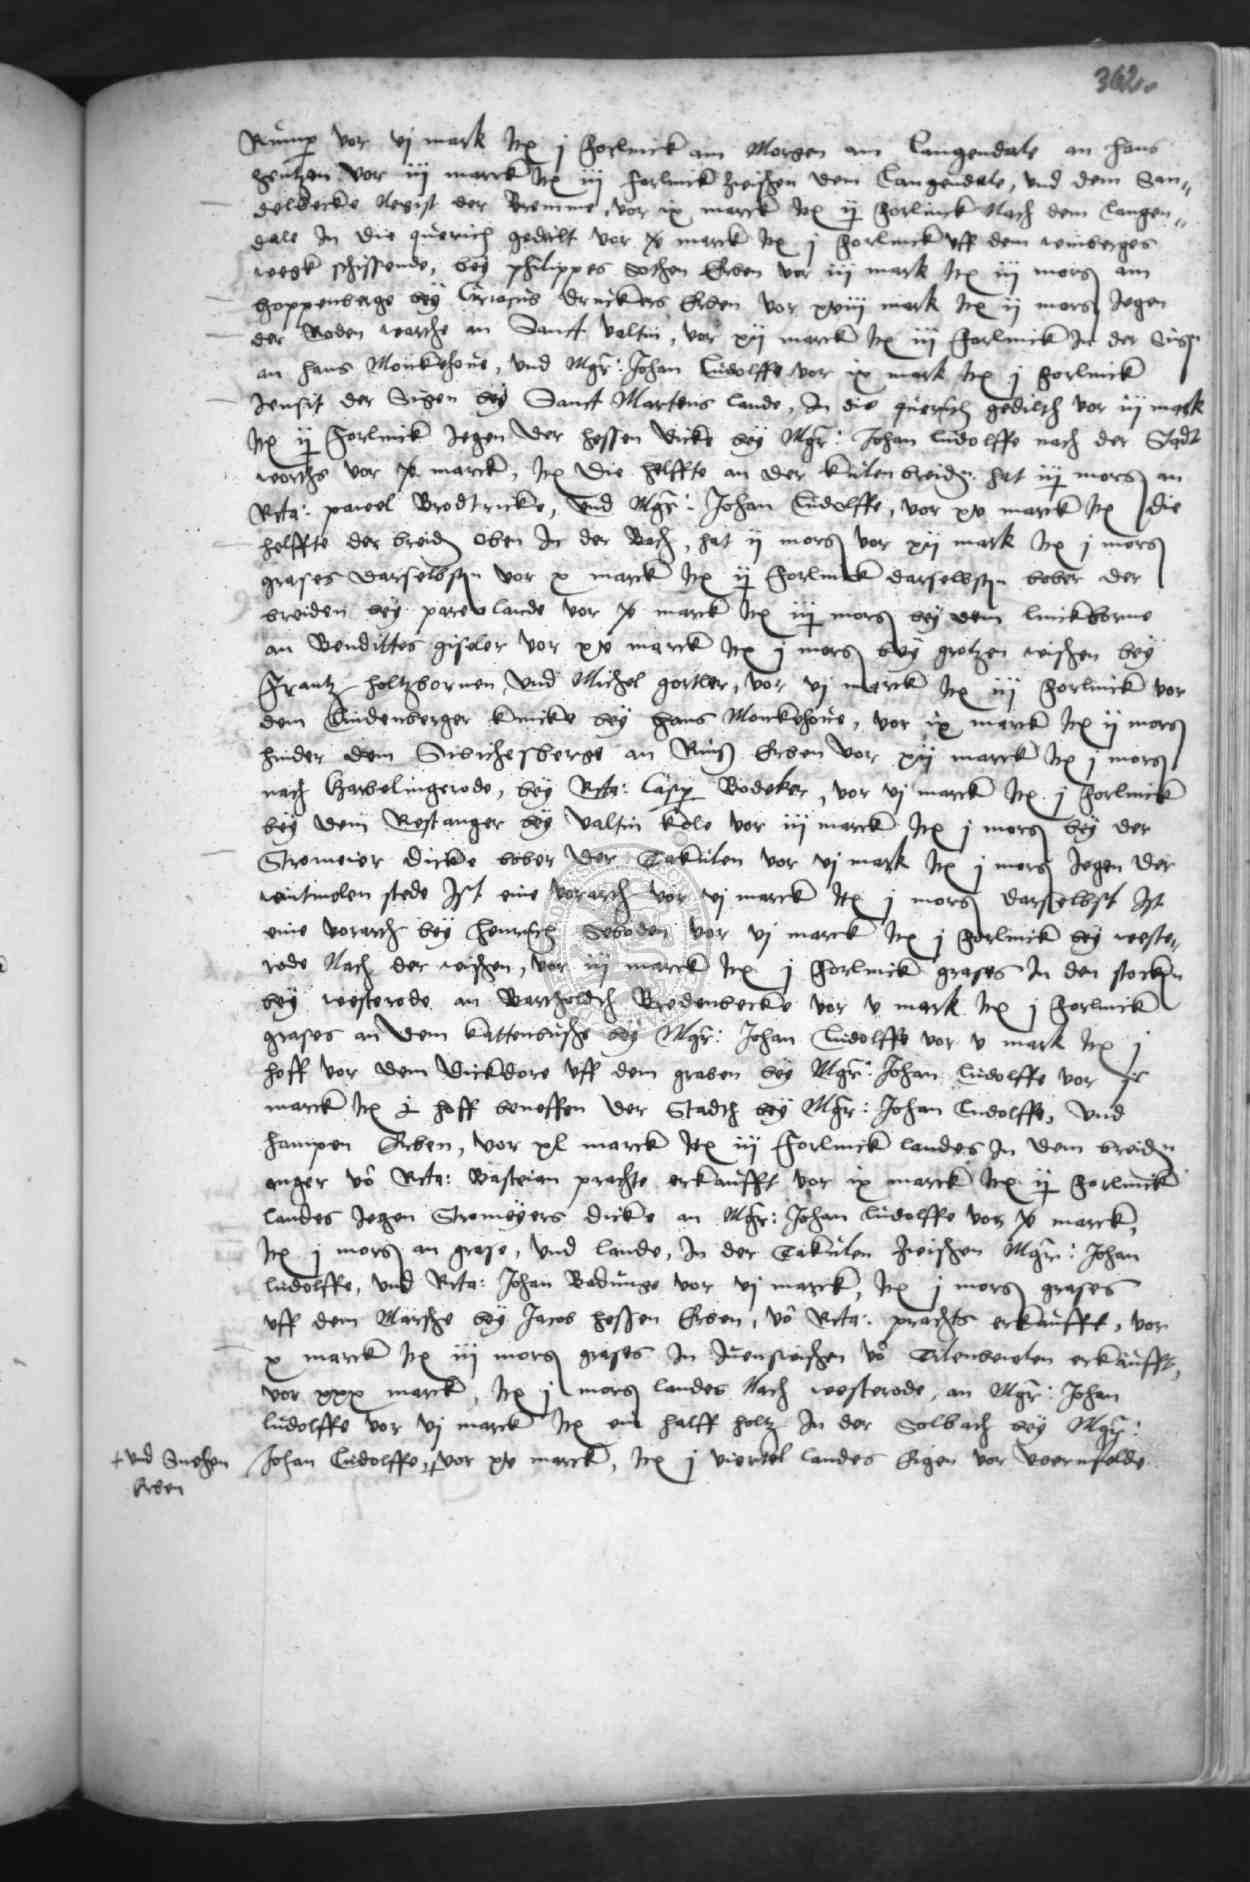 362.
Rump vor vj mark Itz j forlinck am Morgen am Langendale an hans
hentzen vor iij marck Itz iij forlinck zwischen dem Langendale, vnd dem San„
delbecke Negist der Bremme, vor ix marck Itz ij forlinck Nach dem langen„
dale In die querich gedeilt vor x marck Itz j forlinck vff dem winberges
wegk schissende, bey philippes Erben vor iij mark Itz iij morg am
hoppenberge bey Ciriacus druckers Erben vor xviij mark Itz ij morg Jegen
der Roden warthe an Sanct valtin, vor xij marck Itz iij forlinck In der
an hans Monkehoue, vnd Mgr: Johan Ludolffe vor ix mark Itz j forlinck
Jensit der Sigen bey Sanct Martens lande, In die querich gedilth vor iij mark
Itz ij forlinck Jegen der hessen dicke bey Mgr: Johan ludolffe nach der Stadt
werths vor x marck, Itz die helffte an der kulen breiden hat iij morg an
Rcta: pawel Brodtricke, vnd Mgr: Johan Ludolffe, vor xv marck Itz die
helffte der breiden oben In der Bach, hat ij morg vor xij mark Itz j morg
grases darselbsten vor x marck Itz ij forlinck darselbsten bober der
breiden bey lande vor x marck Itz iij morg bey dem linckborne
an Bendittes giseler vor xv marck Itz j morg bey grotzen wischen bey
Frantz holtzbornen, vnd Michel gortler, vor vj marck Itz iij forlinck vor
dem Lindenberger knicke bey hans Monkehoue, vor ix marck Itz ij morg
hinder dem Sulichesberge an Erben vor xij marck Itz j morg
nach Herbelingerode, bey Rcta: Casp Bodeker, vor vj marck Itz j forlinck
bey dem Rostanger bey valtin kole vor iij marck Itz j morg bey der
Stromeier dicke bober der Takulen vor vj mark Itz j morg Jegen der
stede Ist eine vorarth vor vj marck Itz j morg darselbst Ist
eine vorarth bey henrich Seboden vor vj marck Itz j forlinck bey weste„
rode Nach der wischen, vor iij marck Itz j forlinck grases In den stocken
bey westerode an Bartholdt Bredenbecke vor v mark Itz j forlinck
grases an dem kattenbusche bey Mgr: Johan Ludolffe vor v mark Itz j
hoff vor dem dickdore vff dem graben bey Mgr: Johan Ludolffe vor
marck Itz hoff beneffen der Stadth bey Mgr: Johan Ludolffe, vnd
hampen Erben, vor xl marck Itz iij forlinck landes In dem breiden
anger vo Rcta: Bastian prachte erkaufft vor ix marck Itz ij forlinck
landes Jegen Stromeyers dicke an Mgr: Johan ludolffe vor x marck,
Itz j morg an grase, vnd lande, In der Takulen zwischen Mgr: Johan
ludolffe, vnd Rcta: Johan Badunge vor vj marck, Itz j morg grases
vff dem Marsche bey Jacob hessen Erben, vo Rcta: prachts erkaufft, vor
x marck Itz iij morg grases In vo erkaufft,
vor xxx marck, Itz j morg landes Nach westerode, an Mgr: Johan
ludolffe vor vj marck Itz ein halff holtz In der Solbach bey Mgr:
Johan Ludolffe, + vor xv marck, Itz j viertel landes Eigen vor veernfelde
+ vnd Erben